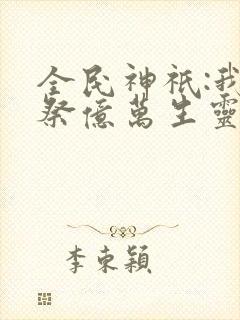 全民神祇:我
祭億萬生靈
李東穎